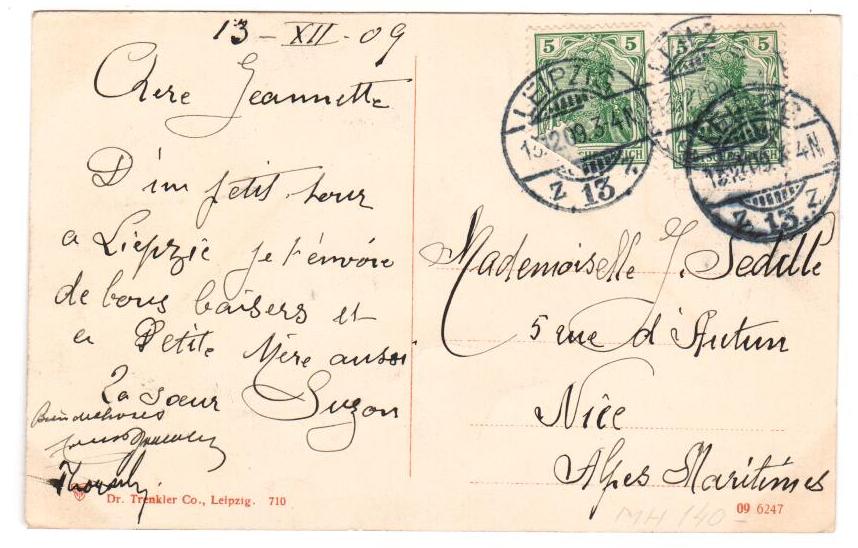 13 - XII - 09
Chere Jeannette
D'un petit tour
a Liepzic je t'envoie
de bons baisers et
a Petite Mère aussi
La sœur Suzon
Bien des choses
Dr. Trenkler Co., Leipzig. 710
5 5
LEIPZIG
13.12.09.3-4N.
Z 13 Z.
LEIPZIG
3-4N
Z 13 Z.
Mademoiselle J. Sedille
5 rue d'Autun
Nice
Alpes Maritimes
09 6247
MH 140-